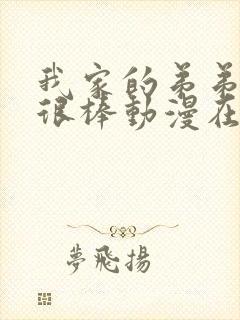 我家的弟弟
很棒動漫在
夢飛揚